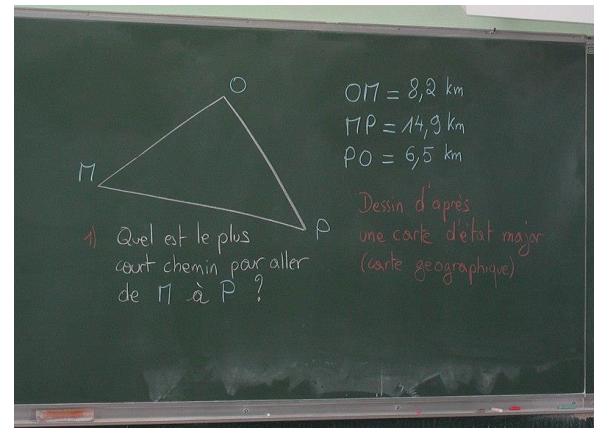 O
M
P
OM = 8,2 km
MP = 14,9 km
PO = 6,5 km
Dessin d'après
une carte d'état major
(carte geographique)
1) Quel est le plus
court chemin pour aller
de M à P ?